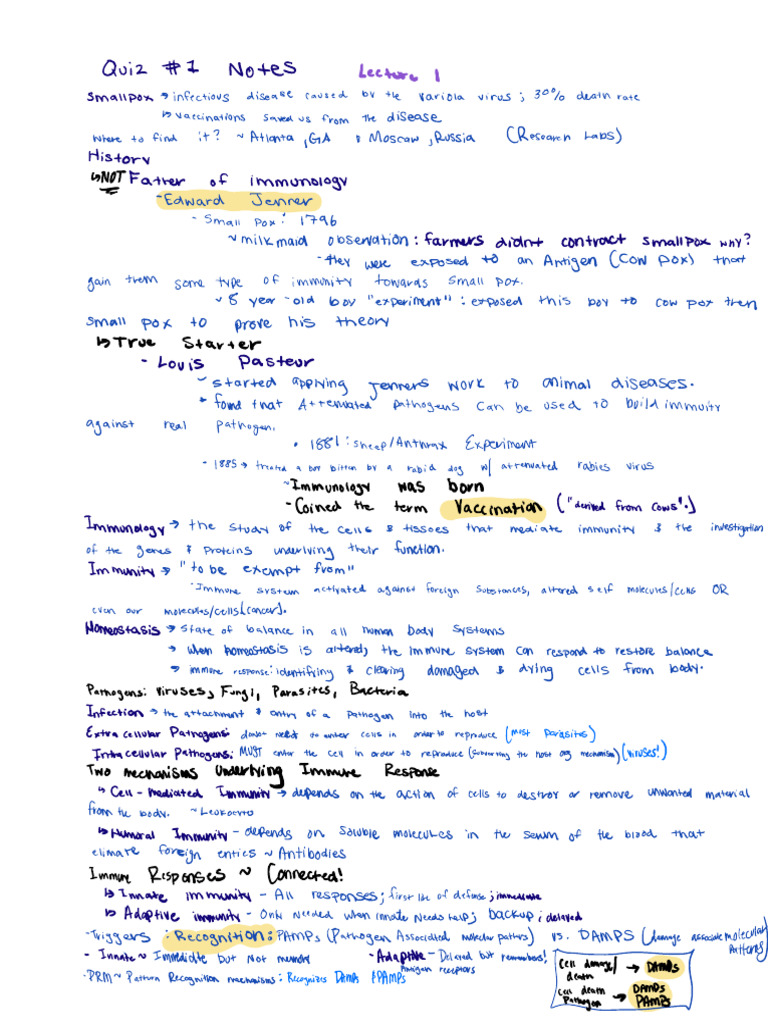 Quiz #1 Notes Lecture 1
Smallpox → infectious disease caused by the variola virus; 30% death rate
↳ vaccinations saved us from the disease
Where to find it? ~ Atlanta, GA & Moscow, Russia (Research Labs)
History
↳ NOT Father of immunology
- Edward Jenner
- Small pox: 1796
~ milkmaid observation: farmers didnt contract smallpox why?
- they were exposed to an Antigen (cow pox) that
gain them some type of immunity towards small pox.
~ 8 year-old boy "experiment": exposed this boy to cow pox then
small pox to prove his theory
↳ True Starter
- Louis Pasteur
~ started applying Jenners work to animal diseases.
* found that Attenuated pathogens can be used to build immuity
against real pathogen.
• 1881: sheep/Anthrax Experiment
- 1885 → treated a boy bitten by a rabid dog w/ attenuated rabies virus
~ Immunology was born
- Coined the term Vaccination ("derived from cows".)
Immunology → the study of the cells & tissoes that mediate immunity & the investigation
of the genes & proteins underlying their function.
Immunity → "to be exempt from"
· Immune system activated against foreign substances, altered self molecules/cells OR
even our molecules/cells (cancer).
Homeostasis → state of balance in all human body systems
→ when homeostasis is altered, the immune system can respond to restore balance
→ immune response: identifying & clearing damaged & dying cells from body.
Pathogens: Viruses, Fungi, Parasites, Bacteria
Infection → the attachment & entry of a pathogen into the host
Extra cellular Pathogens: doubt needs to enter cells in order to reproduce (most parasites)
Intracellular Pathogens: MUST enter the cell in order to reproduce (the host mechanism) (viruses!)
Two mechanisms underlying Immune Response
↳ Cell-mediated Immunity → depends on the action of cells to destroy or remove unwanted material
from the body. ~ Leukocyto
↳ Humoral Immunity - depends on soluble molecules in the serum of the blood that
elimate foreign entics ~ Antibodies
Immune Responses ~ Connected!
↳ Innate immunity - All responses; first line of defense; immediate
↳ Adaptive immunity - Only needed when innate needs help; backup; delayed
- Triggers : Recognition: PAMPs (Pathogen Associated molecular patters) vs. DAMPS (damage associate molecular
patterns)
- Innate ~ Immediate but Not memory - Adaptive - Delayed but remembers!
Antigen receptors
- PRM ~ Pattern Recognition mechanisms: Recognizes DAMPs & PAMPs
Cell damage/
death → DAMPs
cell death
pathogen → DAMPs
PAMPs